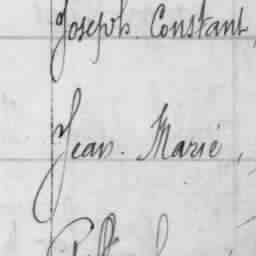 Joseph. Constant,
Jean. Marie,